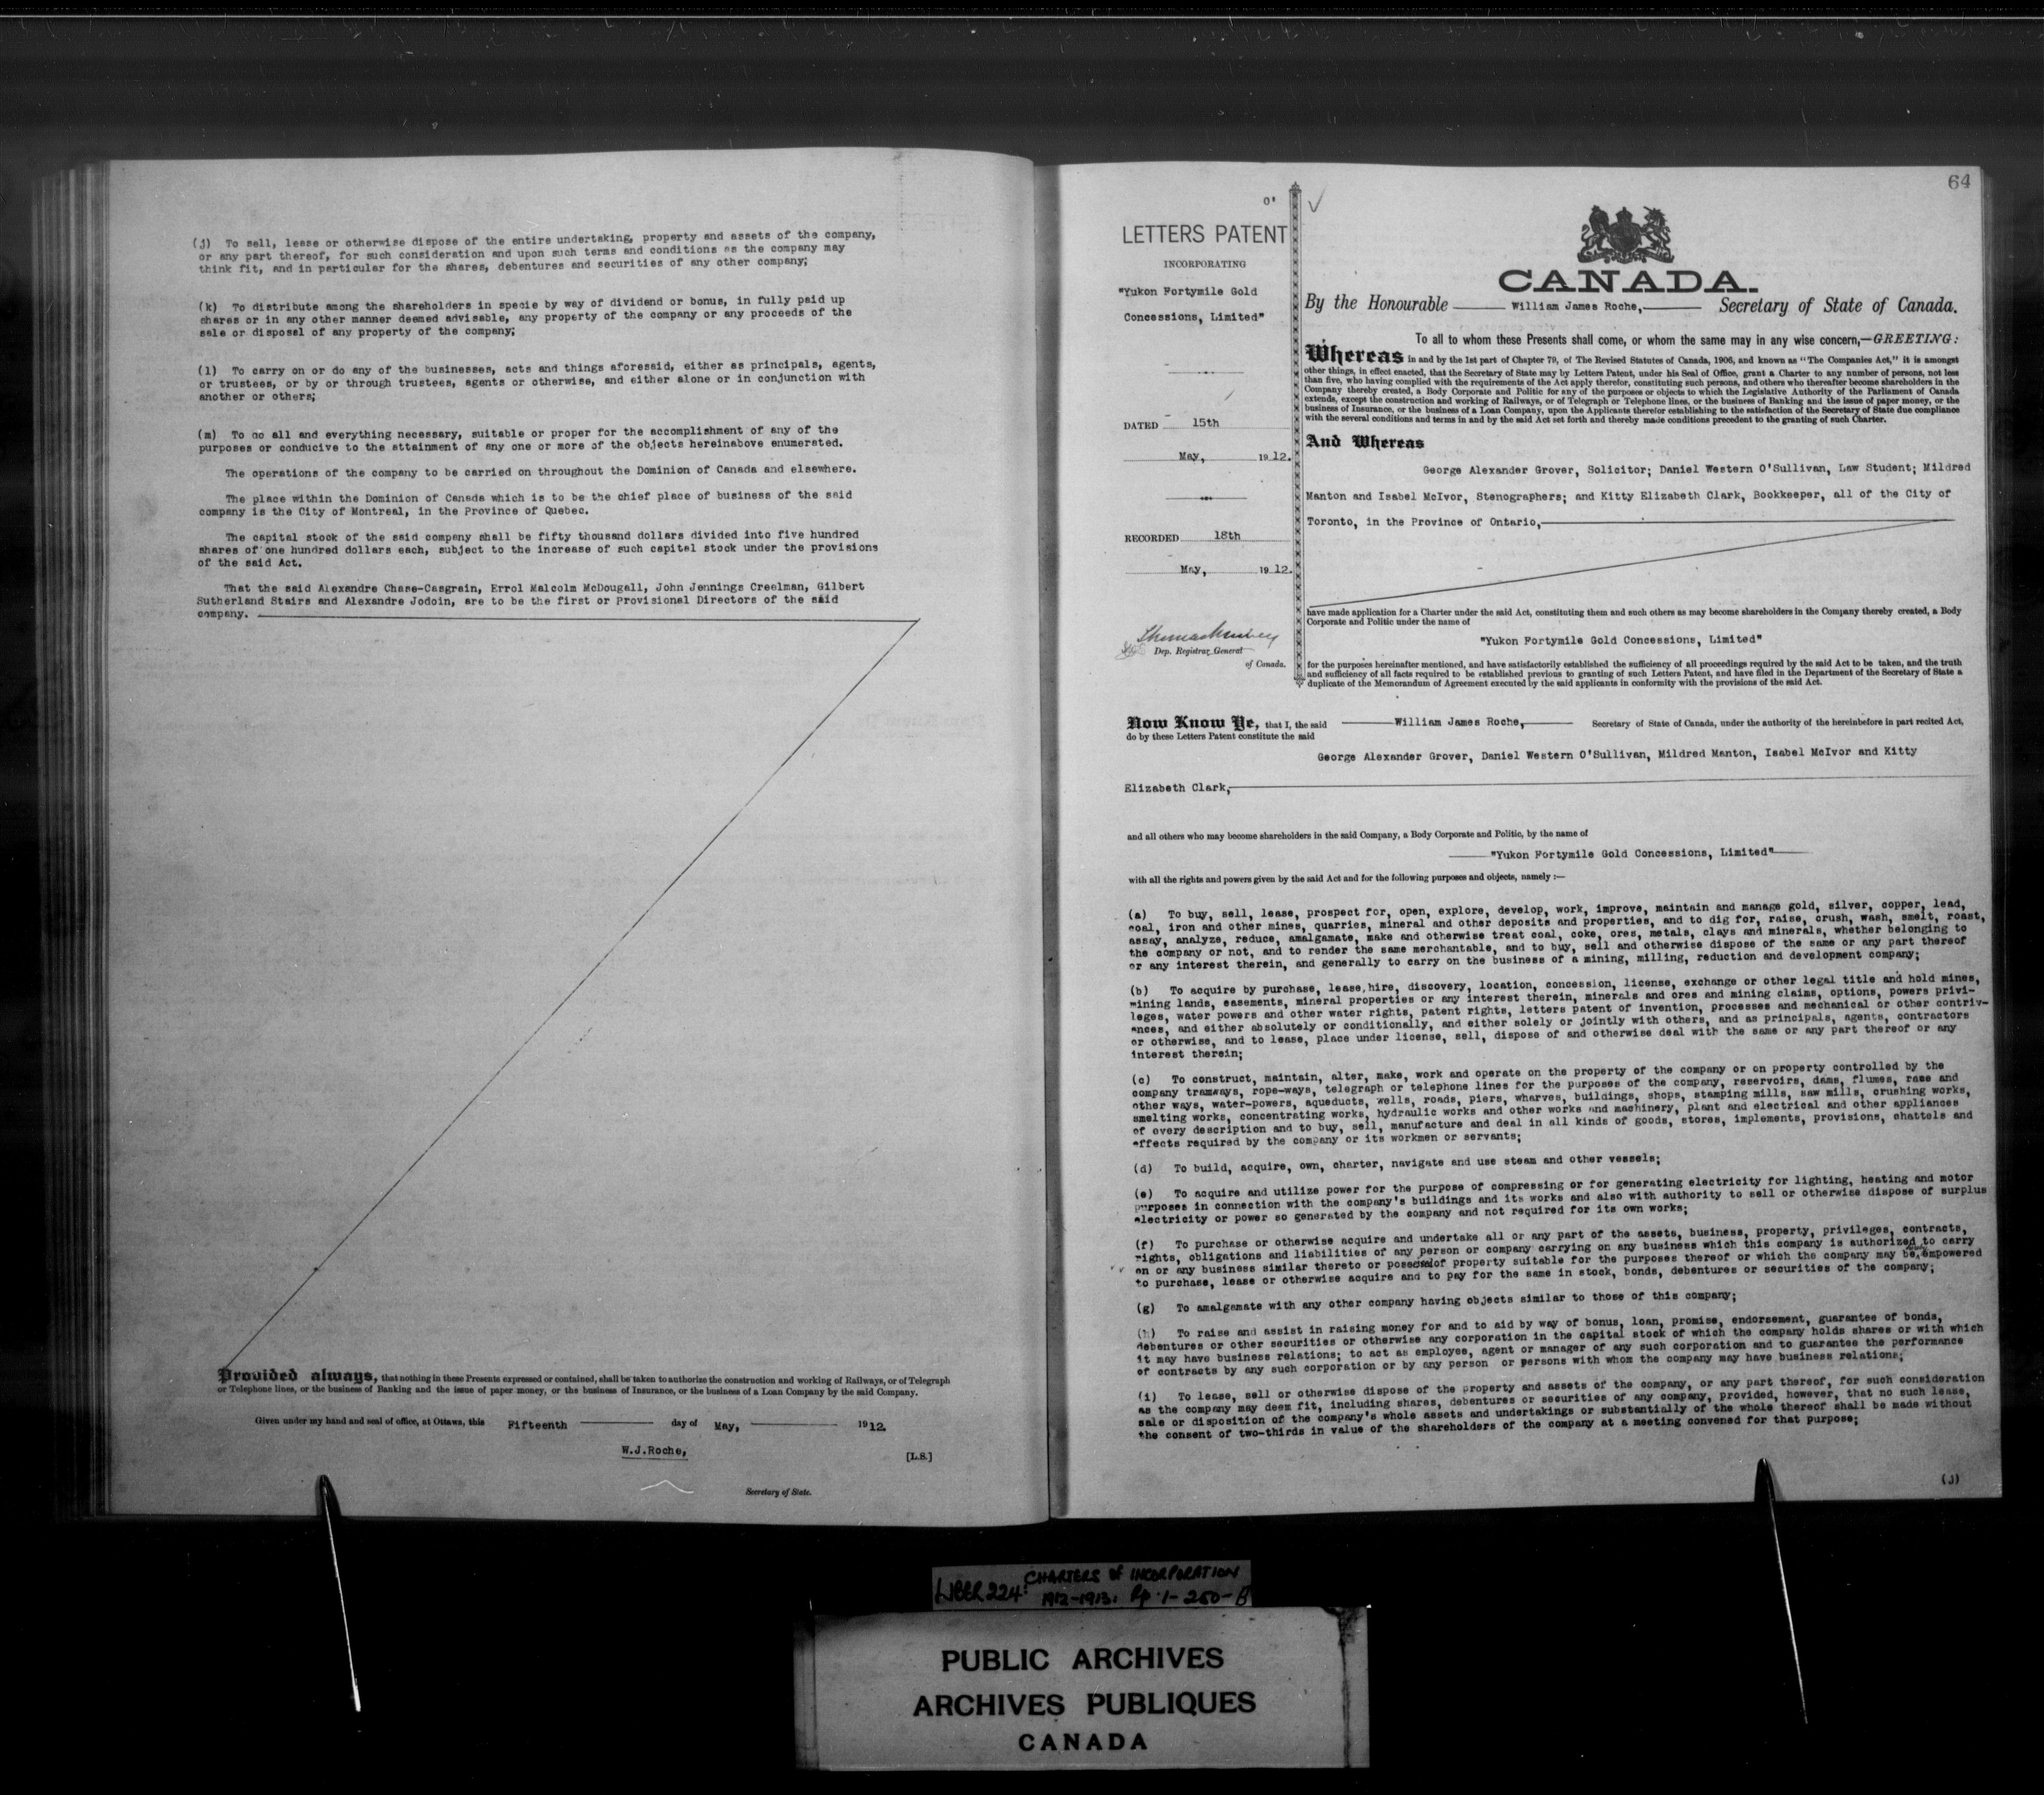 (j) To sell, lease or otherwise dispose of the entire undertaking, property and assets of the company,
or any part thereof, for such consideration and upon such terms and conditions as the company may
think fit, and in particular for the shares, debentures and securities of any other company;
(k) To distribute among the shareholders in specie by way of dividend or bonus, in fully paid up
shares or in any other manner deemed advisable, any property of the company or any proceeds of the
sale or disposal of any property of the company;
(l) To carry on or do any of the businesses, acts and things aforesaid, either as principals, agents,
or trustees, or by or through trustees, agents or otherwise, and either alone or in conjunction with
another or others;
(m) To do all and everything necessary, suitable or proper for the accomplishment of any of the
purposes or conducive to the attainment of any one or more of the objects hereinabove enumerated.
The operations of the company to be carried on throughout the Dominion of Canada and elsewhere.
The place within the Dominion of Canada which is to be the chief place of business of the said
company is the City of Montreal, in the Province of Quebec.
The capital stock of the said company shall be fifty thousand dollars divided into five hundred
shares of one hundred dollars each, subject to the increase of such capital stock under the provisions
of the said Act.
That the said Alexandre Chase-Casgrain, Errol Malcolm McDougall, John Jennings Creelman, Gilbert
Sutherland Stairs and Alexandre Jodoin, are to be the first or Provisional Directors of the said
company.
Provided always, that nothing in these Presents expressed or contained, shall be taken to authorize the construction and working of Railways, or of Telegraph
or Telephone lines, or the business of Banking and the issue of paper money, or the business of Insurance, or the business of a Loan Company by the said Company.
Given under my hand and seal of office, at Ottawa, this Fifteenth day of May, 1912.
W.J.Roche,
[L.S.]
Secretary of State.
64
LETTERS PATENT
INCORPORATING
"Yukon Fortymile Gold
Concessions, Limited"
DATED 15th
May, 1912.
RECORDED 18th
May, 1912.
Dep. Registrar General
of Canada.
CANADA.
By the Honourable William James Roche, Secretary of State of Canada.
To all to whom these Presents shall come, or whom the same may in any wise concern,—GREETING:
Whereas in and by the 1st part of Chapter 79, of The Revised Statutes of Canada, 1906, and known as "The Companies Act," it is amongst
other things, in effect enacted, that the Secretary of State may by Letters Patent, under his Seal of Office, grant a Charter to any number of persons, not less
than five, who having complied with the requirements of the Act apply therefor, constituting such persons, and others who thereafter become shareholders in the
Company thereby created, a Body Corporate and Politic for any of the purposes or objects to which the Legislative Authority of the Parliament of Canada
extends, except the construction and working of Railways, or of Telegraph or Telephone lines, or the business of Banking and the issue of paper money, or the
business of Insurance, or the business of a Loan Company, upon the Applicants therefor establishing to the satisfaction of the Secretary of State due compliance
with the several conditions and terms in and by the said Act set forth and thereby made conditions precedent to the granting of such Charter.
And Whereas
George Alexander Grover, Solicitor; Daniel Western O'Sullivan, Law Student; Mildred
Manton and Isabel McIvor, Stenographers; and Kitty Elizabeth Clark, Bookkeeper, all of the City of
Toronto, in the Province of Ontario,
have made application for a Charter under the said Act, constituting them and such others as may become shareholders in the Company thereby created, a Body
Corporate and Politic under the name of
"Yukon Fortymile Gold Concessions, Limited"
for the purposes hereinafter mentioned, and have satisfactorily established the sufficiency of all proceedings required by the said Act to be taken, and the truth
and sufficiency of all facts required to be established previous to granting of such Letters Patent, and have filed in the Department of the Secretary of State a
duplicate of the Memorandum of Agreement executed by the said applicants in conformity with the provisions of the said Act.
Now Know Ye, that I, the said William James Roche, Secretary of State of Canada, under the authority of the hereinbefore in part recited Act,
do by these Letters Patent constitute the said
George Alexander Grover, Daniel Western O'Sullivan, Mildred Manton, Isabel McIvor and Kitty
Elizabeth Clark,
and all others who may become shareholders in the said Company, a Body Corporate and Politic, by the name of
"Yukon Fortymile Gold Concessions, Limited"
with all the rights and powers given by the said Act and for the following purposes and objects, namely :—
(a) To buy, sell, lease, prospect for, open, explore, develop, work, improve, maintain and manage gold, silver, copper, lead,
coal, iron and other mines, quarries, mineral and other deposits and properties, and to dig for, raise, crush, wash, smelt, roast,
assay, analyze, reduce, amalgamate, make and otherwise treat coal, coke, ores, metals, clays and minerals, whether belonging to
the company or not, and to render the same merchantable, and to buy, sell and otherwise dispose of the same or any part thereof
or any interest therein, and generally to carry on the business of a mining, milling, reduction and development company;
(b) To acquire by purchase, lease,hire, discovery, location, concession, license, exchange or other legal title and hold mines,
mining lands, easements, mineral properties or any interest therein, minerals and ores and mining claims, options, powers privi-
leges, water powers and other water rights, patent rights, letters patent of invention, processes and mechanical or other contriv-
ances, and either absolutely or conditionally, and either solely or jointly with others, and as principals, agents, contractors
or otherwise, and to lease, place under license, sell, dispose of and otherwise deal with the same or any part thereof or any
interest therein;
(c) To construct, maintain, alter, make, work and operate on the property of the company or on property controlled by the
company tramways, rope-ways, telegraph or telephone lines for the purposes of the company, reservoirs, dams, flumes, race and
other ways, water-powers, aqueducts, wells, roads, piers, wharves, buildings, shops, stamping mills, saw mills, crushing works,
smelting works, concentrating works, hydraulic works and other works and machinery, plant and electrical and other appliances
of every description and to buy, sell, manufacture and deal in all kinds of goods, stores, implements, provisions, chattels and
effects required by the company or its workmen or servants;
(d) To build, acquire, own, charter, navigate and use steam and other vessels;
(e) To acquire and utilize power for the purpose of compressing or for generating electricity for lighting, heating and motor
purposes in connection with the company's buildings and its works and also with authority to sell or otherwise dispose of surplus
electricity or power so generated by the company and not required for its own works;
(f) To purchase or otherwise acquire and undertake all or any part of the assets, business, property, privileges, contracts,
rights, obligations and liabilities of any person or company carrying on any business which this company is authorized to carry
on or any business similar thereto or possessed of property suitable for the purposes thereof or which the company may be empowered
to purchase, lease or otherwise acquire and to pay for the same in stock, bonds, debentures or securities of the company;
(g) To amalgamate with any other company having objects similar to those of this company;
(h) To raise and assist in raising money for and to aid by way of bonus, loan, promise, endorsement, guarantee of bonds,
debentures or other securities or otherwise any corporation in the capital stock of which the company holds shares or with which
it may have business relations; to act as employee, agent or manager of any such corporation and to guarantee the performance
of contracts by any such corporation or by any person or persons with whom the company may have business relations;
(i) To lease, sell or otherwise dispose of the property and assets of the company, or any part thereof, for such consideration
as the company may deem fit, including shares, debentures or securities of any company, provided, however, that no such lease,
sale or disposition of the company's whole assets and undertakings or substantially of the whole thereof shall be made without
the consent of two-thirds in value of the shareholders of the company at a meeting convened for that purpose;
(J)
LIBER 224: CHARTERS OF INCORPORATION
1912-1913. Pp. 1-250-B
PUBLIC ARCHIVES
ARCHIVES PUBLIQUES
CANADA